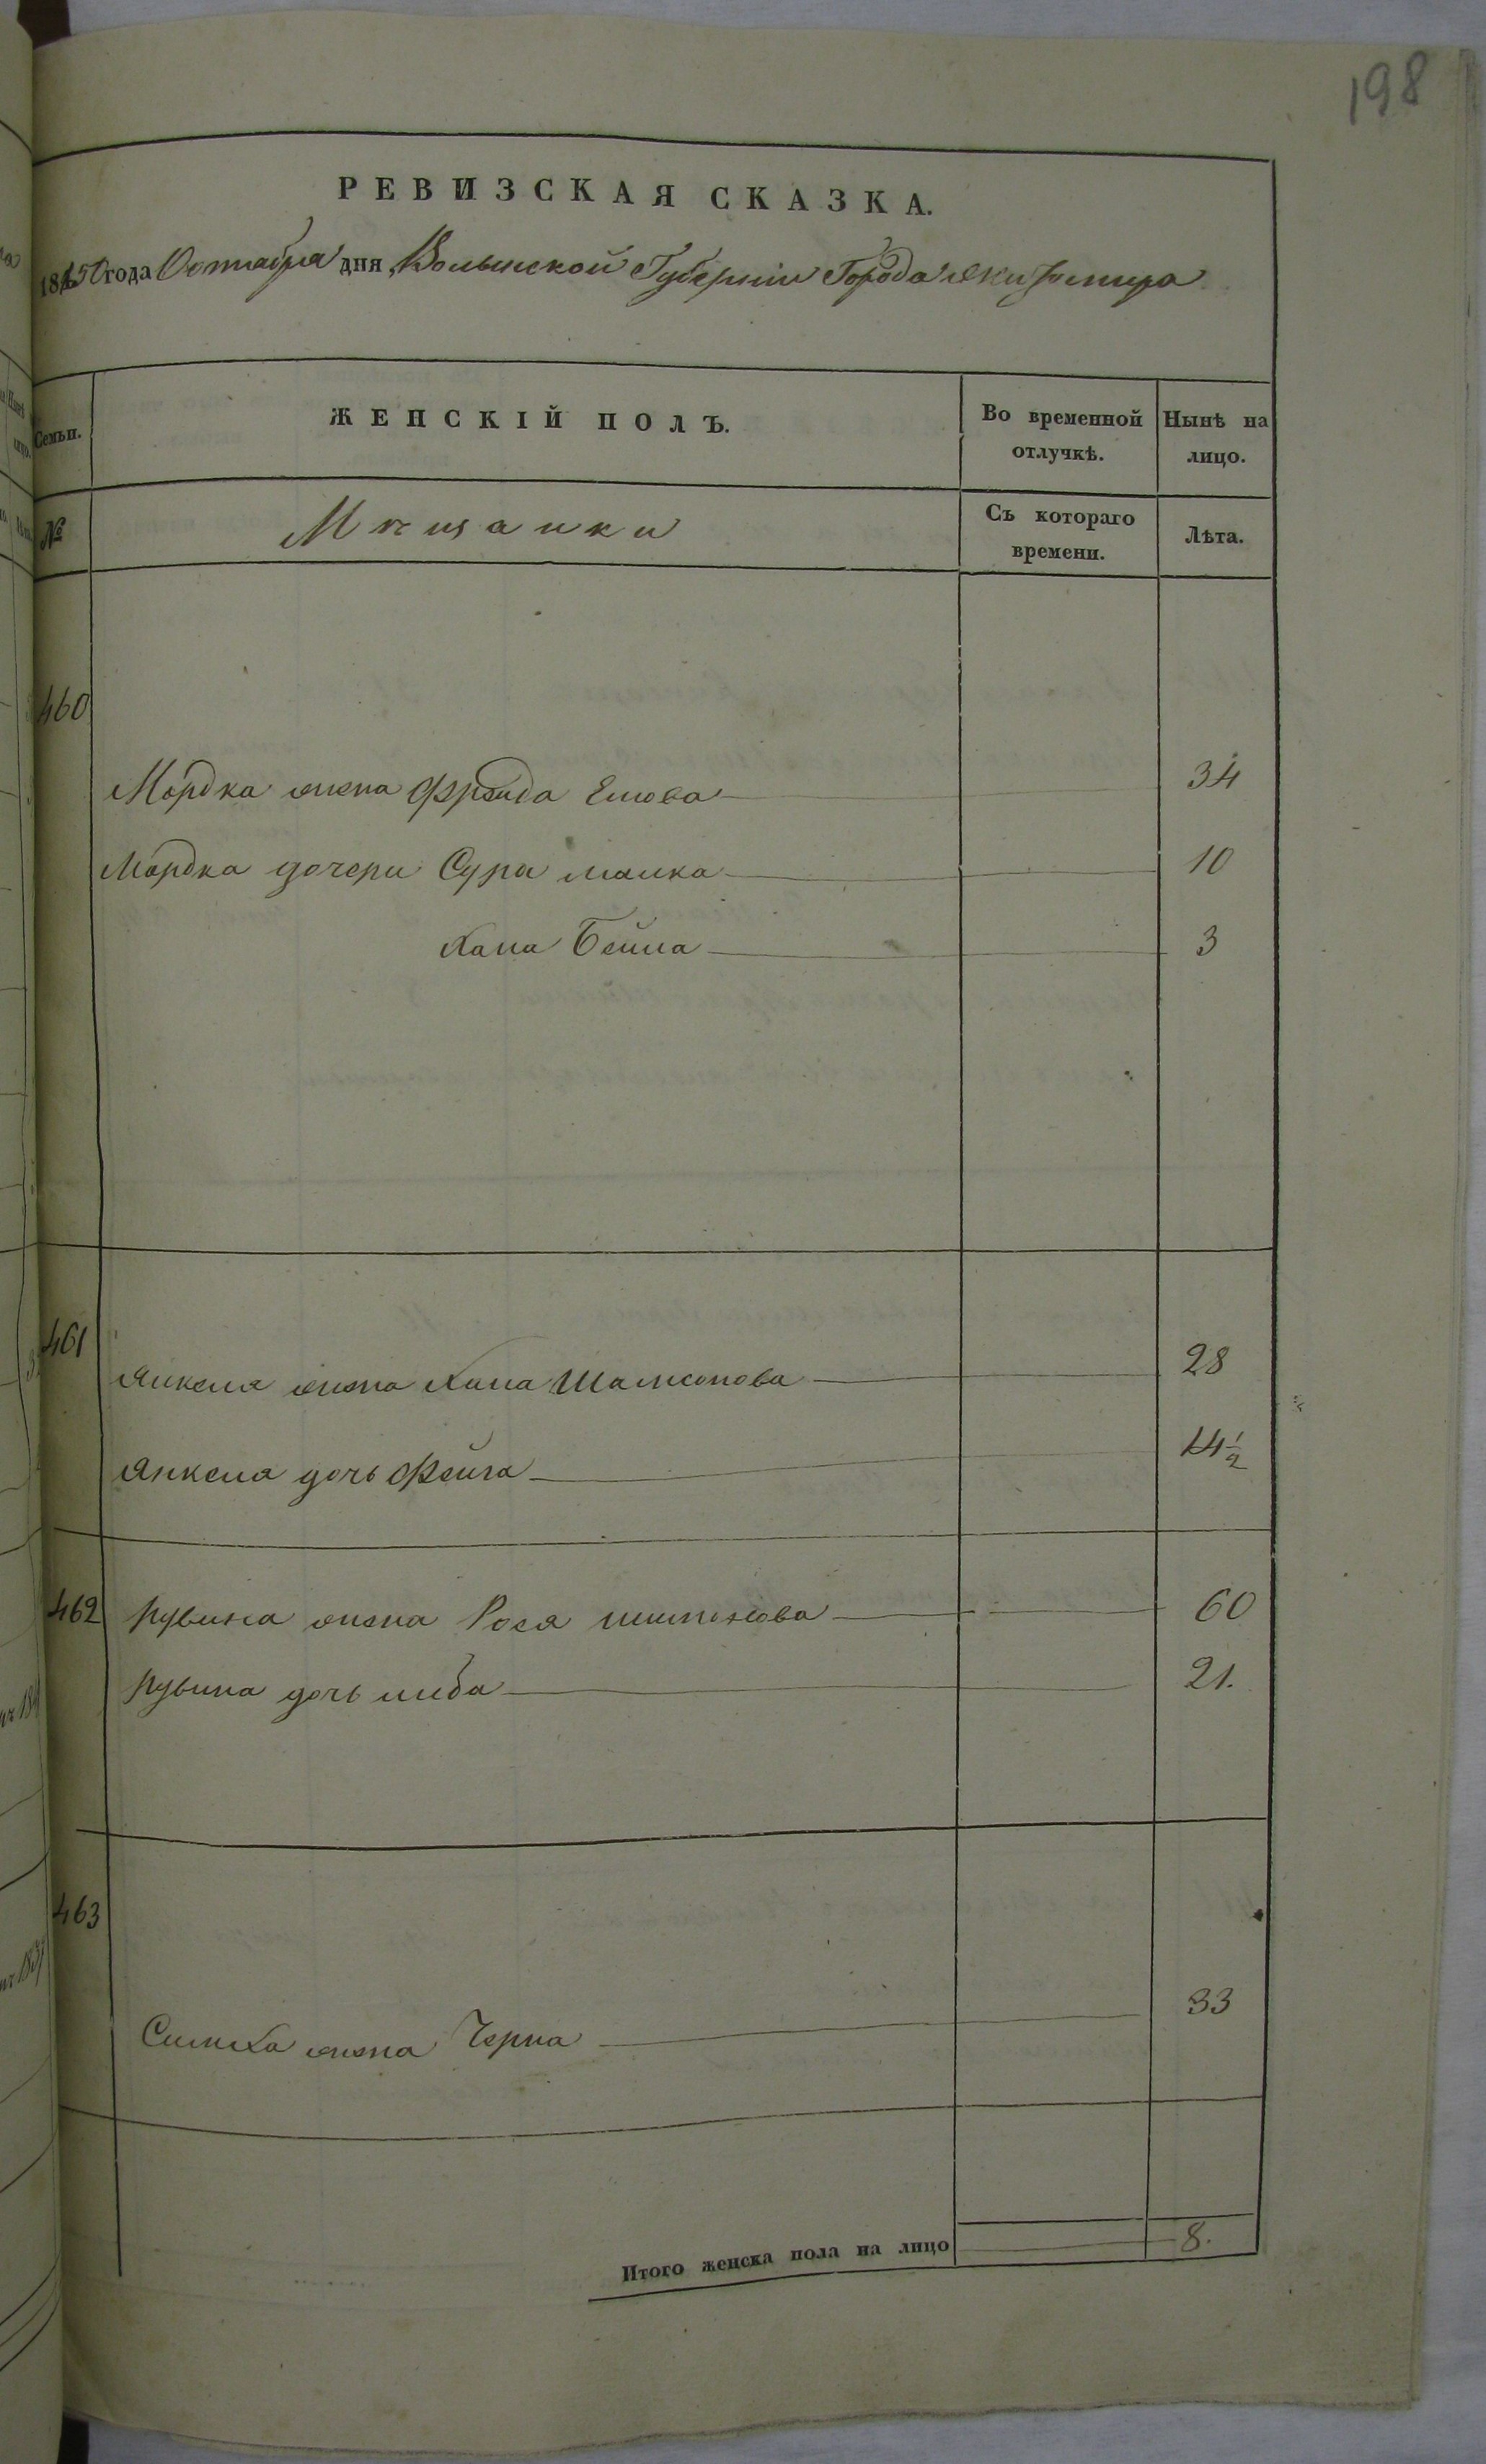 198
РЕВИЗСКАЯ СКАЗКА.
1850 года Октября дня Волынской Губернии Города Житомира
Семьи.
ЖЕНСКІЙ ПОЛЪ.
Во временной отлучкѣ.
Нынѣ на лицо.
№
Мѣщанки
Съ котораго времени.
Лѣта.
460
Мордка жена Фрейда Ешова 34
Мордка дочери Сура малка 10
Хана Бейла 3
461
Янкеля жена Хана Шамсонова 28
Янкеля дочь Фейга 14½
462 Рувина жена Рося 60
Рувина дочь либа 21.
463
Симха жена Черна 33
Итого женска пола на лицо 8.